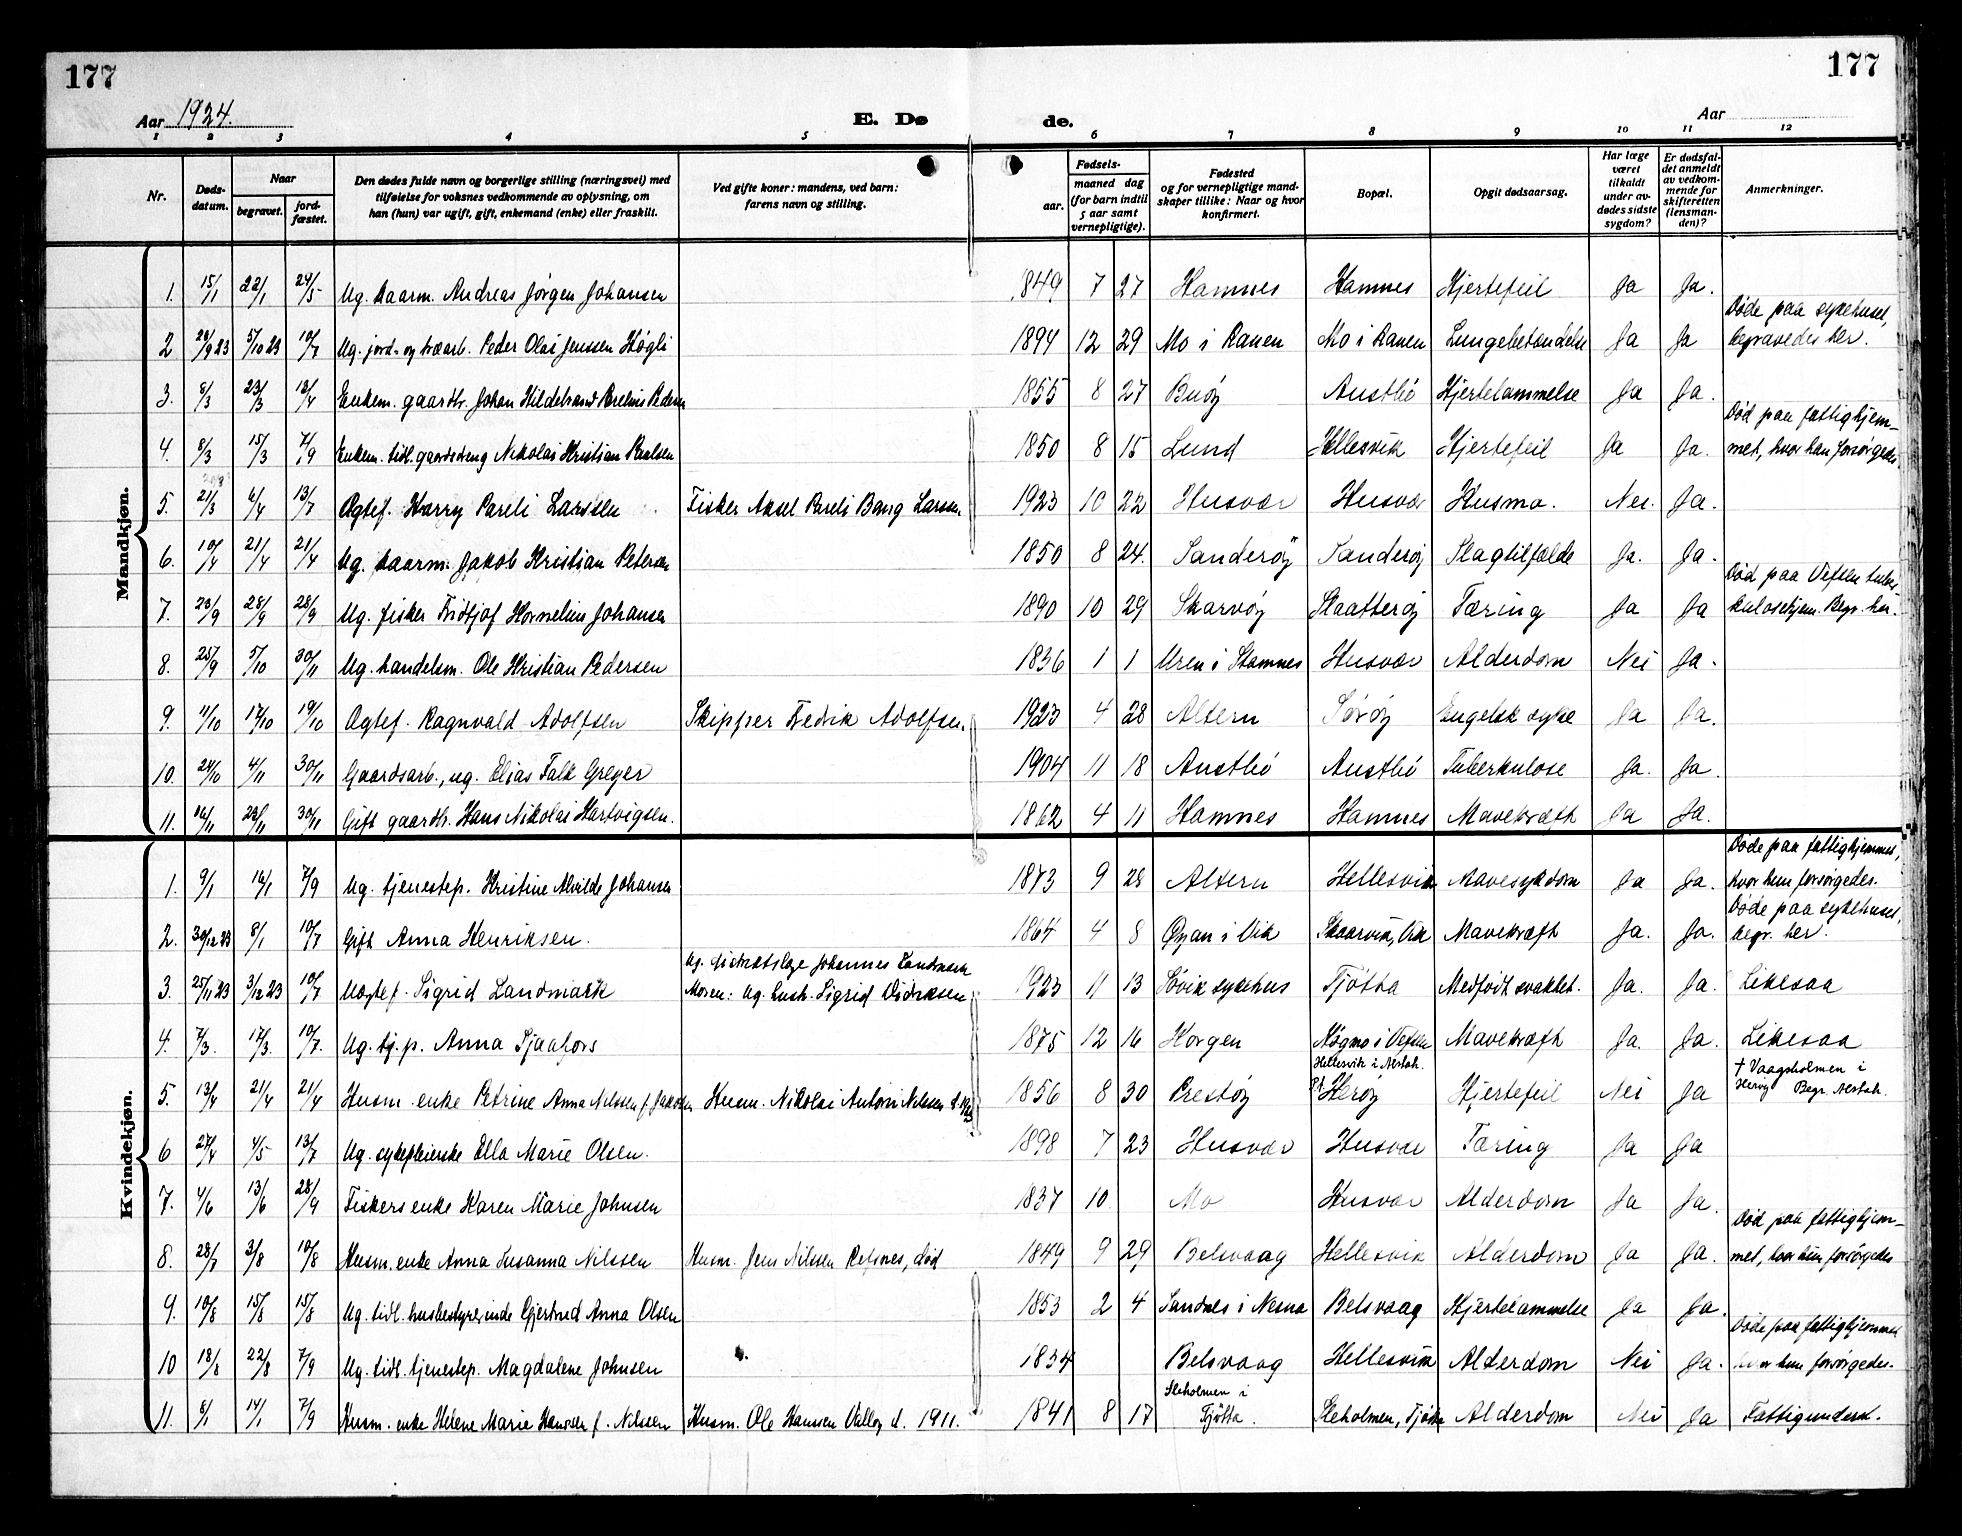 177
177
Aar 1924.
E. Døde.
Aar
1 2 3 4 5 6 7 8 9 10 11 12
Nr.
Døds-datum.
Naar
begravet.
jord-fæstet.
Den dødes fulde navn og borgerlige stilling (næringsvei) med
tilføielse for voksnes vedkommende av oplysning, om
han (hun) var ugift, gift, enkemand (enke) eller fraskilt.
Ved gifte koner: mandens, ved barn:
farens navn og stilling.
Fødsels-
aar.
maaned dag
(for barn indtil
5 aar samt
vernepligtige).
Fødested
og for vernepligtige mand-
skaper tillike: Naar og hvor
konfirmert.
Bopæl.
Opgit dødsaarsag.
Har læge
været
tilkaldt
under av-
dødes sidste
sygdom?
Er dødsfal-
det anmeldt
av vedkom-
mende for
skifteretten
(lensman-
den)?
Anmerkninger.
Mandkjøn.
1. 15/1 22/1 24/5 Ug. kaarm. Andreas Jørgen Johansen 1849 7 27 Hamnes Hamnes Hjertefeil Ja Ja.
Døde paa sykehuset,
2 26/9 23 5/10 23 10/7 Ug. jord- og træarb. Peder Olai Jenssen Høgli 1894 12 29 Mo i Ranen Mo i Ranen Lungebetændelse Ja Ja begravedes her.
3. 8/3 23/3 13/4 Enkem. gaardbr. Johan Hildebrand Perelius Pedersen 1855 8 27 Buøy Austbø Hjertelammelse Ja Ja.
Død paa fattighjem-
4. 8/3 15/3 7/9 Enkem. tidl. gaardsdreng Nikolai Kristian Paulsen 1850 8 15 Lund Hellesvik Hjertefeil Ja Ja. met, hvor han forsørgedes
5. 21/3 6/4 13/7 Ægtef. Harry Pareli Larssen Fisker Aksel Pareli Bang Larssen 1923 10 22 Husvær Husvær Krusma. Nei. Ja.
6. 10/4 21/4 21/4 Ug. kaarm. Jakob Kristian Petersen 1850 8 24. Sanderøy Sanderøy Slagtilfælde Ja. Ja.
Død paa Vefsen tuber-
7. 20/9 28/9 28/9 Ug. fisker Fridtjof Kornelius Johansen 1890 10 29 Skarvøy Slaatterøy Tæring Ja Ja kulosehjem. Begr. her.
8. 25/9 5/10 30/11 Ug. handelsm. Ole Kristian Pedersen 1836 1 1 Uren i Stamnes Husvær Alderdom Nei Ja.
9. 4/10 17/10 19/10 Ægtef. Ragnvald Adolfsen Skipper Fredrik Adolfsen. 1923 4 28 Altern Sørøy Engelsk syke Ja Ja.
10. 24/10 4/11 30/11 Gaardsarb., ug. Elias Falk Greger 1904 11 18 Austbø Austbø Tuberkulose Ja. Ja.
11. 16/11 23/11 30/11 Gift gaardbr. Hans Nikolai Hartvigsen. 1862 4 11 Hamnes Hamnes Mavekræft Ja Ja.
Kvindekjøn.
Døde paa fattighjemmet,
1. 9/1 16/1 7/9 Ug. tjenestep. Kristine Alvilde Johansen 1873 9 28 Altern Hellesvik Mavesykdom Ja Ja. hvor hun forsørgedes.
Døde paa sykehuset,
2. 30/12 23 8/1 10/7 Gift Anna Henriksen. 1864 4 8 Øyan i Vik Skaarvik, Vik Mavekræft Ja. Ja. begr. her.
Ug. distriktslæge Johannes Landmark
3. 25/11 23 3/12 23 10/7 Uegtef. Sigrid Landmark Moren: ug. hush. Sigrid Didriksen 1923 11 13 Søvik sykehus Tjøtta Medfødt svakhet. Ja. Ja. Likesaa
4. 7/3. 17/3. 10/7. Ug. tj.p. Anna Sjaafors 1875 12 16 Horgen Høgmo i Vefsen Mavekræft Ja. Ja. Likesaa
Hellesvik i Alstah.
† Vaagsholmen i
5. 13/4 21/4 21/4 Husm. enke Petrine Anna Nilssen f. Jakobsen Husm. Nikolai Antoni Nilssen d. 1/23 1856 8 30 Prestøy p.t. Herøy Hjertefeil Nei Ja Herøy Begr. Alstah.
6 27/4 4/5 13/7 Ug. sykepleierske Ella Marie Olsen. 1898 7 23 Husvær Husvær Tæring Ja Ja
7. 4/6 13/6 28/9 Fiskers enke Karen Marie Johnsen 1837 10 Mo Husvær Alderdom Ja Ja.
Død paa fattighjem-
8. 28/7 3/8 10/8 Husm. enke Anna Susanna Nilssen Husm. Jens Nilssen Refsnes, død 1849 9 29 Belsvaag Hellesvik Alderdom Ja Ja. met, hvor hun forsørgedes
9. 10/8 15/8 15/8 Ug. tidl. husbestyrerinde Gjertrud Anna Olsen 1853 2 4 Sandnes i Nesna Belsvaag Hjertelammelse Ja Ja.
Døde paa fattighjemmet
10 18/8 22/8 7/9 Ug. tidl. tjenestep. Magdalene Johnsen 1834 Belsvaag Hellesvik Alderdom Nei Ja. hvor hun forsørgedes.
Sleholmen i
11. 8/1 14/1 7/9 Husm. enke Helene Marie Hanssen f. Nilssen Husm. Ole Hanssen Valløy d. 1911. 1841 8 17 Tjøtta. Sleholmen, Tjøtta Alderdom Nei Ja Fattigunderst.